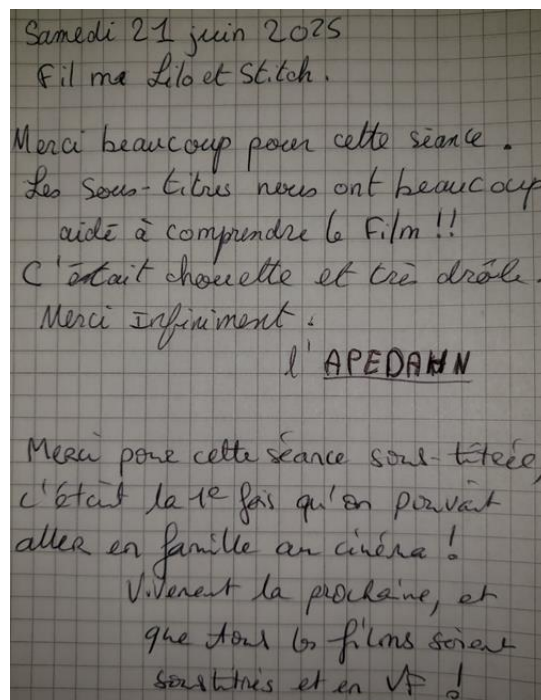 Samedi 21 juin 2025
Film Lilo et Stitch.
Merci beaucoup pour cette séance.
Les Sous-titres nous ont beaucoup
aidé à comprendre le Film !!
C'était chouette et très drôle.
Merci Infiniment.
l'APEDAHN
Merci pour cette séance sous-titrée,
c'était la 1e fois qu'on pouvait
aller en famille au cinéma !
Vivement la prochaine, et
que tous les films soient
soustitrés et en VF !